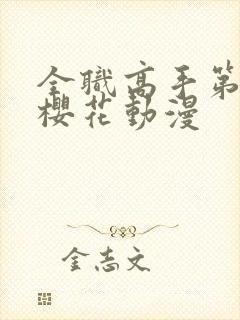 全職高手第
櫻花動漫
金志文